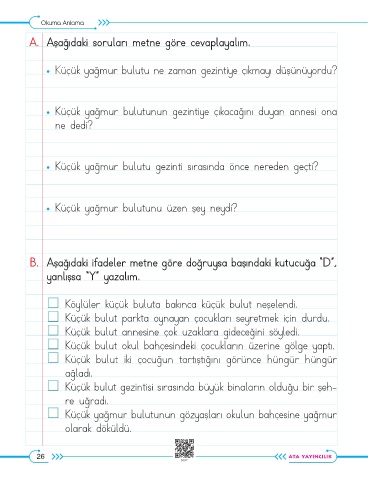 Okuma Anlama
A. Aşağıdaki soruları metne göre cevaplayalım.
• Küçük yağmur bulutu ne zaman gezintiye çıkmayı düşünüyordu?
• Küçük yağmur bulutunun gezintiye çıkacağını duyan annesi ona
ne dedi?
• Küçük yağmur bulutu gezinti sırasında önce nereden geçti?
• Küçük yağmur bulutunu üzen şey neydi?
B. Aşağıdaki ifadeler metne göre doğruysa başındaki kutucuğa "D",
yanlışsa "Y" yazalım.
Köylüler küçük buluta bakınca küçük bulut neşelendi.
Küçük bulut parkta oynayan çocukları seyretmek için durdu.
Küçük bulut annesine çok uzaklara gideceğini söyledi.
Küçük bulut okul bahçesindeki çocukların üzerine gölge yaptı.
Küçük bulut iki çocuğun tartıştığını görünce hüngür hüngür
ağladı.
Küçük bulut gezintisi sırasında büyük binaların olduğu bir şeh-
re uğradı.
Küçük yağmur bulutunun gözyaşları okulun bahçesine yağmur
olarak döküldü.
26
ATA YAYINCILIK